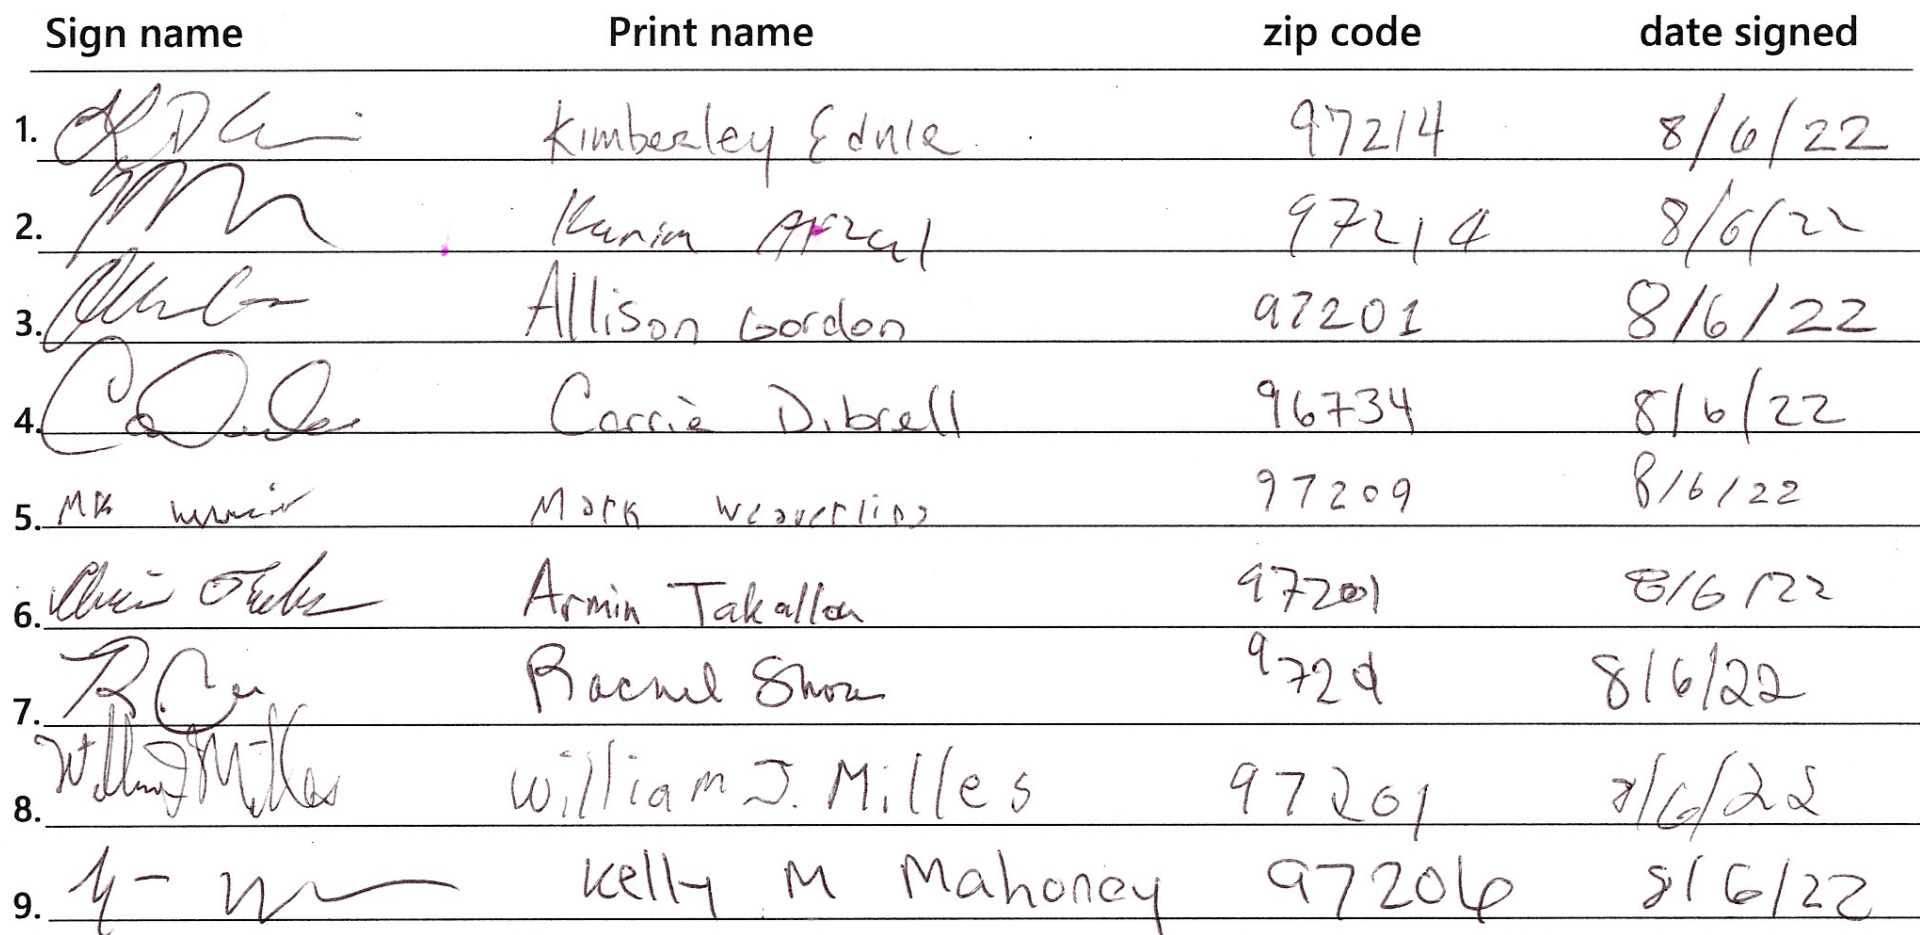 Sign name Print name zip code date signed
1. Kimberley Ednie 97214 8/6/22
2. Karim Afzal 97214 8/6/22
3. Allison Gordon 97201 8/6/22
4. Carrie Dibrell 96734 8/6/22
5. Mark Weaverling 97209 8/6/22
6. Armin Takallou 97201 8/6/22
7. Rachel 8/6/22
8. William J Milles William J. Milles 97201 8/6/22
9. Kelly M Mahoney 97206 8/6/22